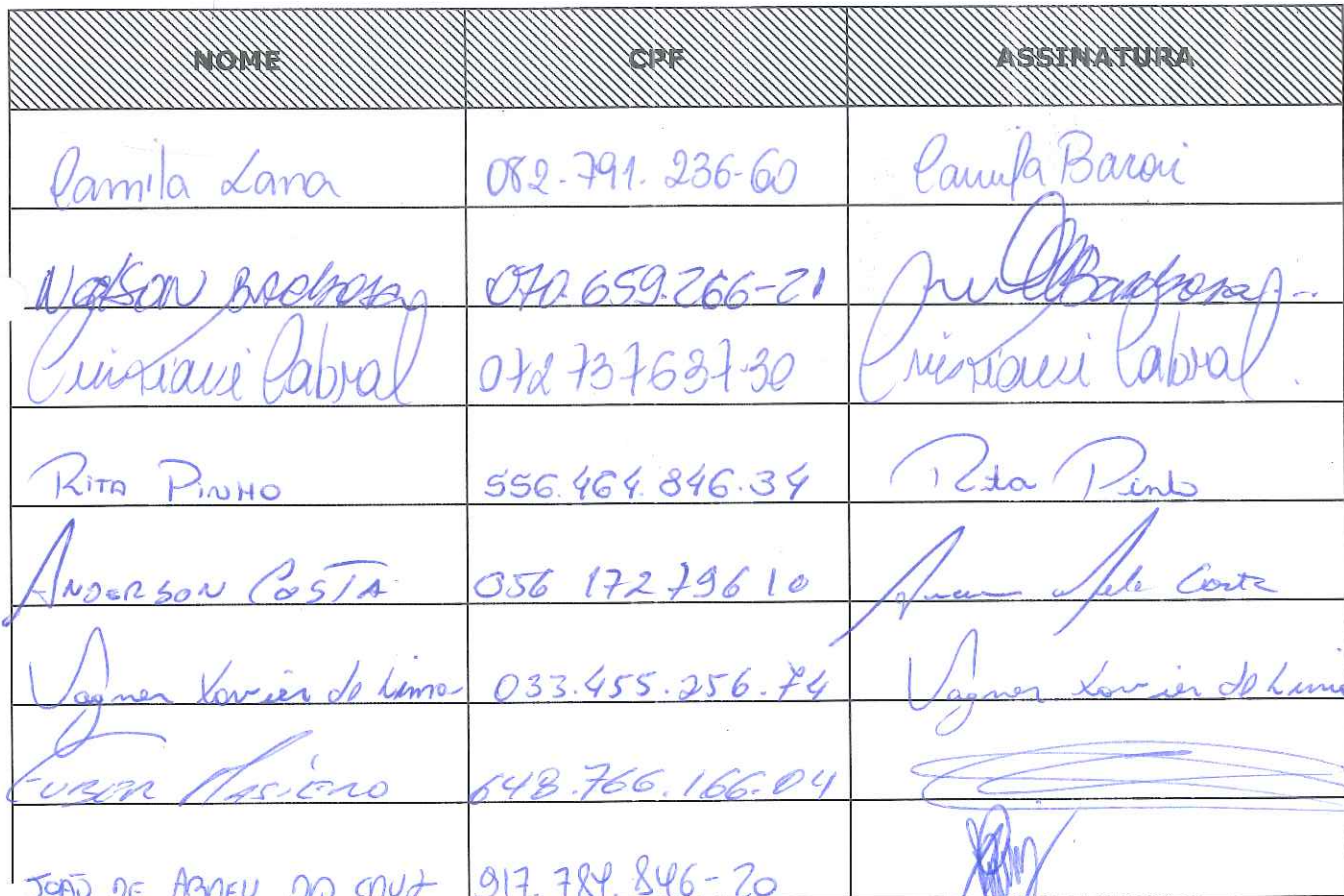 NOME CPF ASSINATURA
Camila Lana 082.791.236-60 Camila Baroni
Nadson Barbosa 070.659.266-21 Barbosa
Cristiani Cabral 072 737637-30 Cristiani Cabral.
RITA PINHO 556.464.846.34 Rita Pinho
ANDERSON COSTA 056 172 796 10 Costa
Vagner Xavier de Lima 033.455.256.74 Vagner Xavier de Lima
648.766.166-04
JOÃO DE ABREU DA CRUZ 917.784.846-20